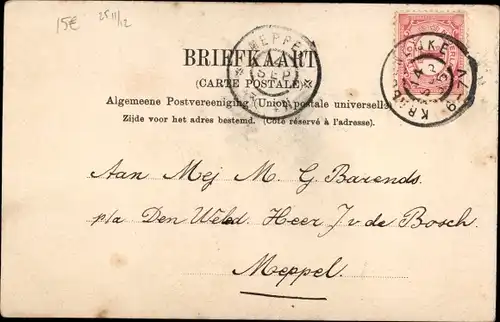 15€
25 11/12
BRIEFKAART
(CARTE POSTALE)
Algemeene Postvereeniging (Union postale universelle)
Zijde voor het adres bestemd. (Côté réservé à l'adresse).
MEPPEL
SEP
Aan Mej M. G. Barends.
p/a Den Weled. Heer J. v. de Bosch.
Meppel.